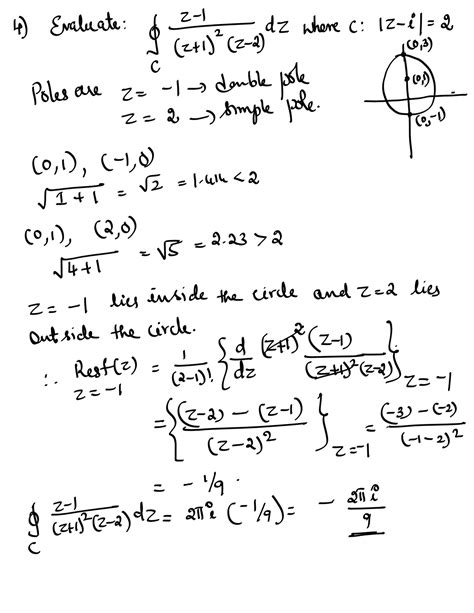 4) Evaluate: ∮_C (z-1)/((z+1)²(z-2)) dz where C: |z-i| = 2
(0,3)
(0,1)
(0,-1)
Poles are z = -1 → double pole
z = 2 → simple pole.
(0,1), (-1,0)
√(1+1) = √2 = 1.414 < 2
(0,1), (2,0)
√(4+1) = √5 = 2.23 > 2
z = -1 lies inside the circle and z=2 lies
outside the circle.
∴ Res f(z) z=-1 = 1/(2-1)! {d/dz (z+1)² (z-1)/((z+1)²(z-2))} z=-1
= {((z-2) - (z-1))/(z-2)²} z=-1 = ((-3) - (-2))/(-1-2)²
= -1/9.
∮_C (z-1)/((z+1)²(z-2)) dz = 2πi (-1/9) = - 2πi/9